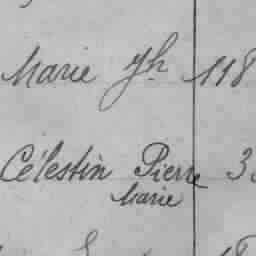 Marie Jh 118
Célestin Pierre 3
Marie